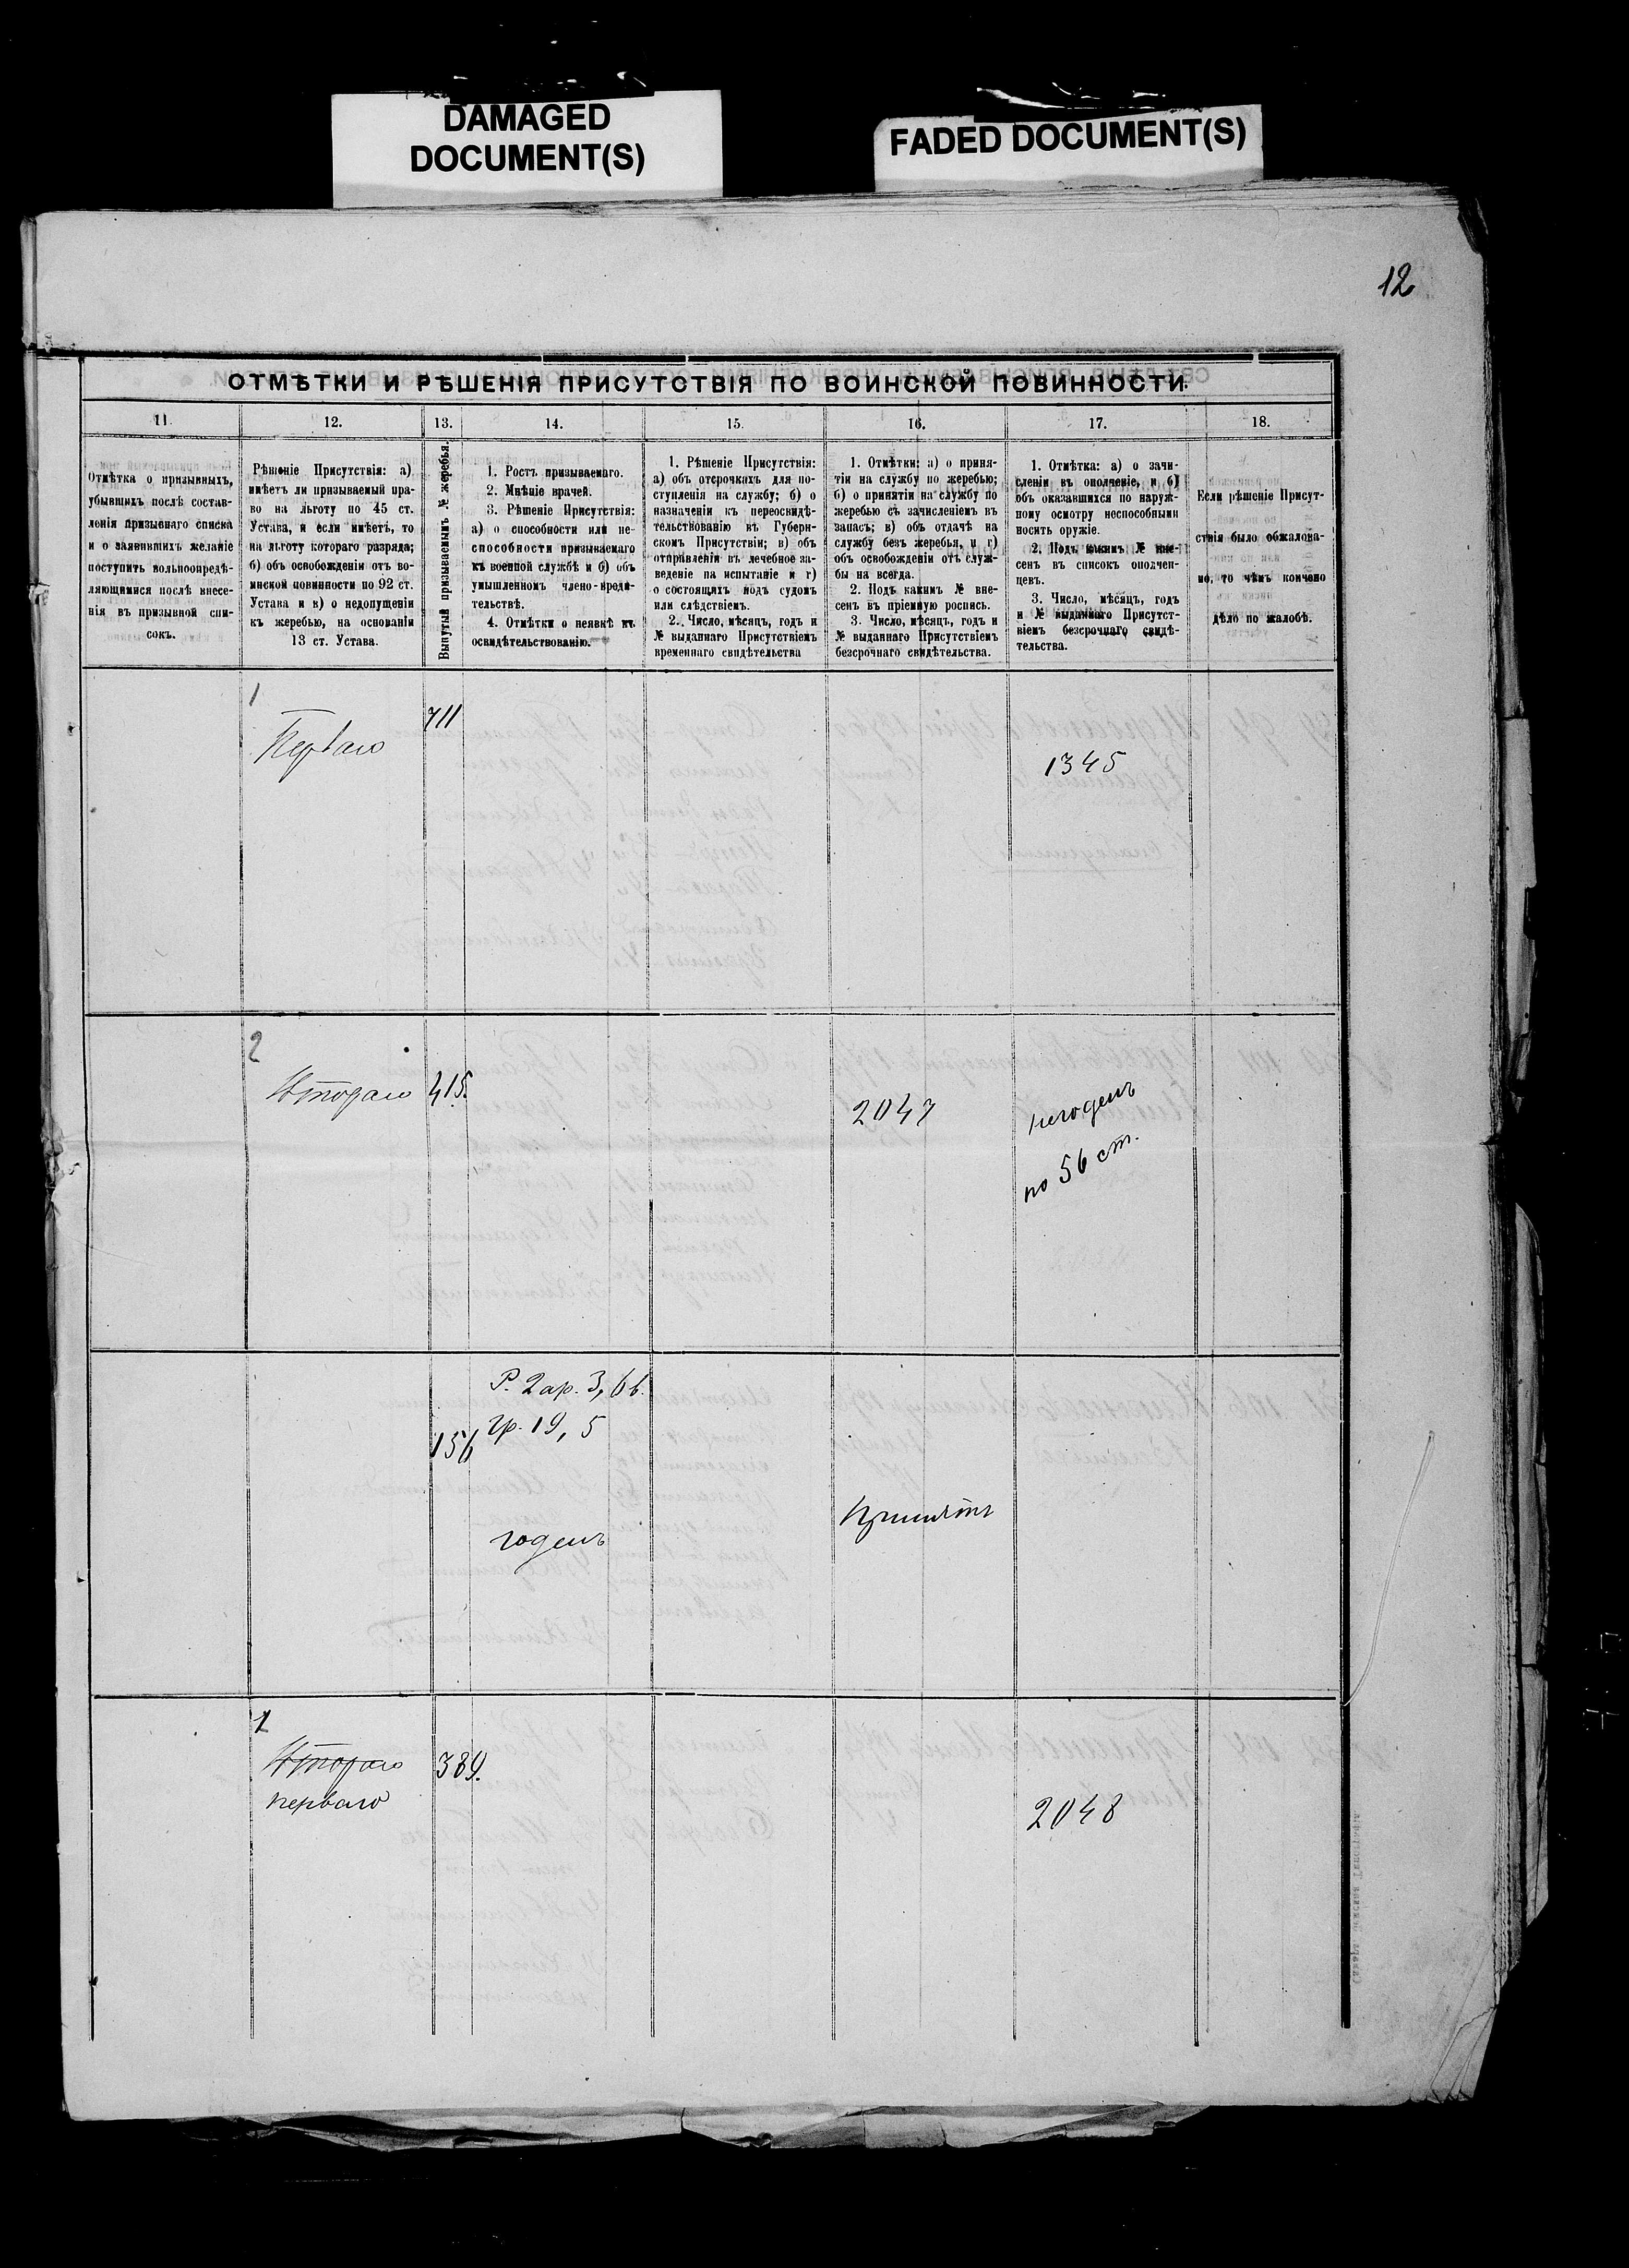 DAMAGED
DOCUMENT(S)
FADED DOCUMENT(S)
12
ОТМѢТКИ И РѢШЕНІЯ ПРИСУТСТВІЯ ПО ВОИНСКОЙ ПОВИННОСТИ.
11.
12.
13.
14.
15.
16.
17.
18.
Отмѣтка о призывныхъ,
убывшихъ послѣ состав-
ленія призывнаго списка
и о заявившихъ желаніе
поступить вольноопредѣ-
ляющимися послѣ внесе-
нія въ призывной спи-
сокъ.
Рѣшеніе Присутствія: а)
имѣетъ ли призываемый пра-
во на льготу по 45 ст.
Устава, и если имѣетъ, то
на льготу котораго разряда;
б) объ освобожденіи отъ во-
инской повинности по 92 ст.
Устава и в) о недопущеніи
къ жеребью, на основаніи
13 ст. Устава.
Вынутый призываемымъ № жеребья.
1. Ростъ призываемаго.
2. Мнѣніе врачей.
3. Рѣшеніе Присутствія:
а) о способности или не-
способности призываемаго
къ военной службѣ и б) объ
умышленномъ члено-вреди-
тельствѣ.
4. Отмѣтки о неявкѣ къ
освидѣтельствованію.
1. Рѣшеніе Присутствія:
а) объ отсрочкахъ для по-
ступленія на службу; б) о
назначеніи къ переосвидѣ-
тельствованію въ Губерн-
скомъ Присутствіи; в) объ
отправленіи въ лечебное за-
веденіе на испытаніе и г)
о состоящихъ подъ судомъ
или слѣдствіемъ.
2. Число, мѣсяцъ, годъ и
№ выданнаго Присутствіемъ
временнаго свидѣтельства
1. Отмѣтки: а) о приня-
тіи на службу по жеребью;
б) о принятіи на службу по
жеребью съ зачисленіемъ въ
запасъ; в) объ отдачѣ на
службу безъ жеребья, и г)
объ освобожденіи отъ служ-
бы на всегда.
2. Подъ какимъ № вне-
сенъ въ пріемную роспись.
3. Число, мѣсяцъ, годъ и
№ выданнаго Присутствіемъ
безсрочнаго свидѣтельства.
1. Отмѣтка: а) о зачи-
сленіи въ ополченіе, и б)
объ оказавшихся по наруж-
ному осмотру неспособными
носить оружіе.
2. Подъ какимъ № вне-
сенъ въ списокъ ополчен-
цевъ.
3. Число, мѣсяцъ, годъ
и № выданнаго Присутст-
віемъ безсрочнаго свидѣ-
тельства.
Если рѣшеніе Присут-
ствія было обжалова-
но, то чѣмъ кончено
дѣло по жалобѣ.
1
Перваго
711
1345
2
Втораго
415.
2047
негоденъ
по 56 ст.
156
Р. 2 ар. 3, 6 в.
гр. 19, 5
годенъ
Принятъ
1
Втораго
перваго
389.
2048